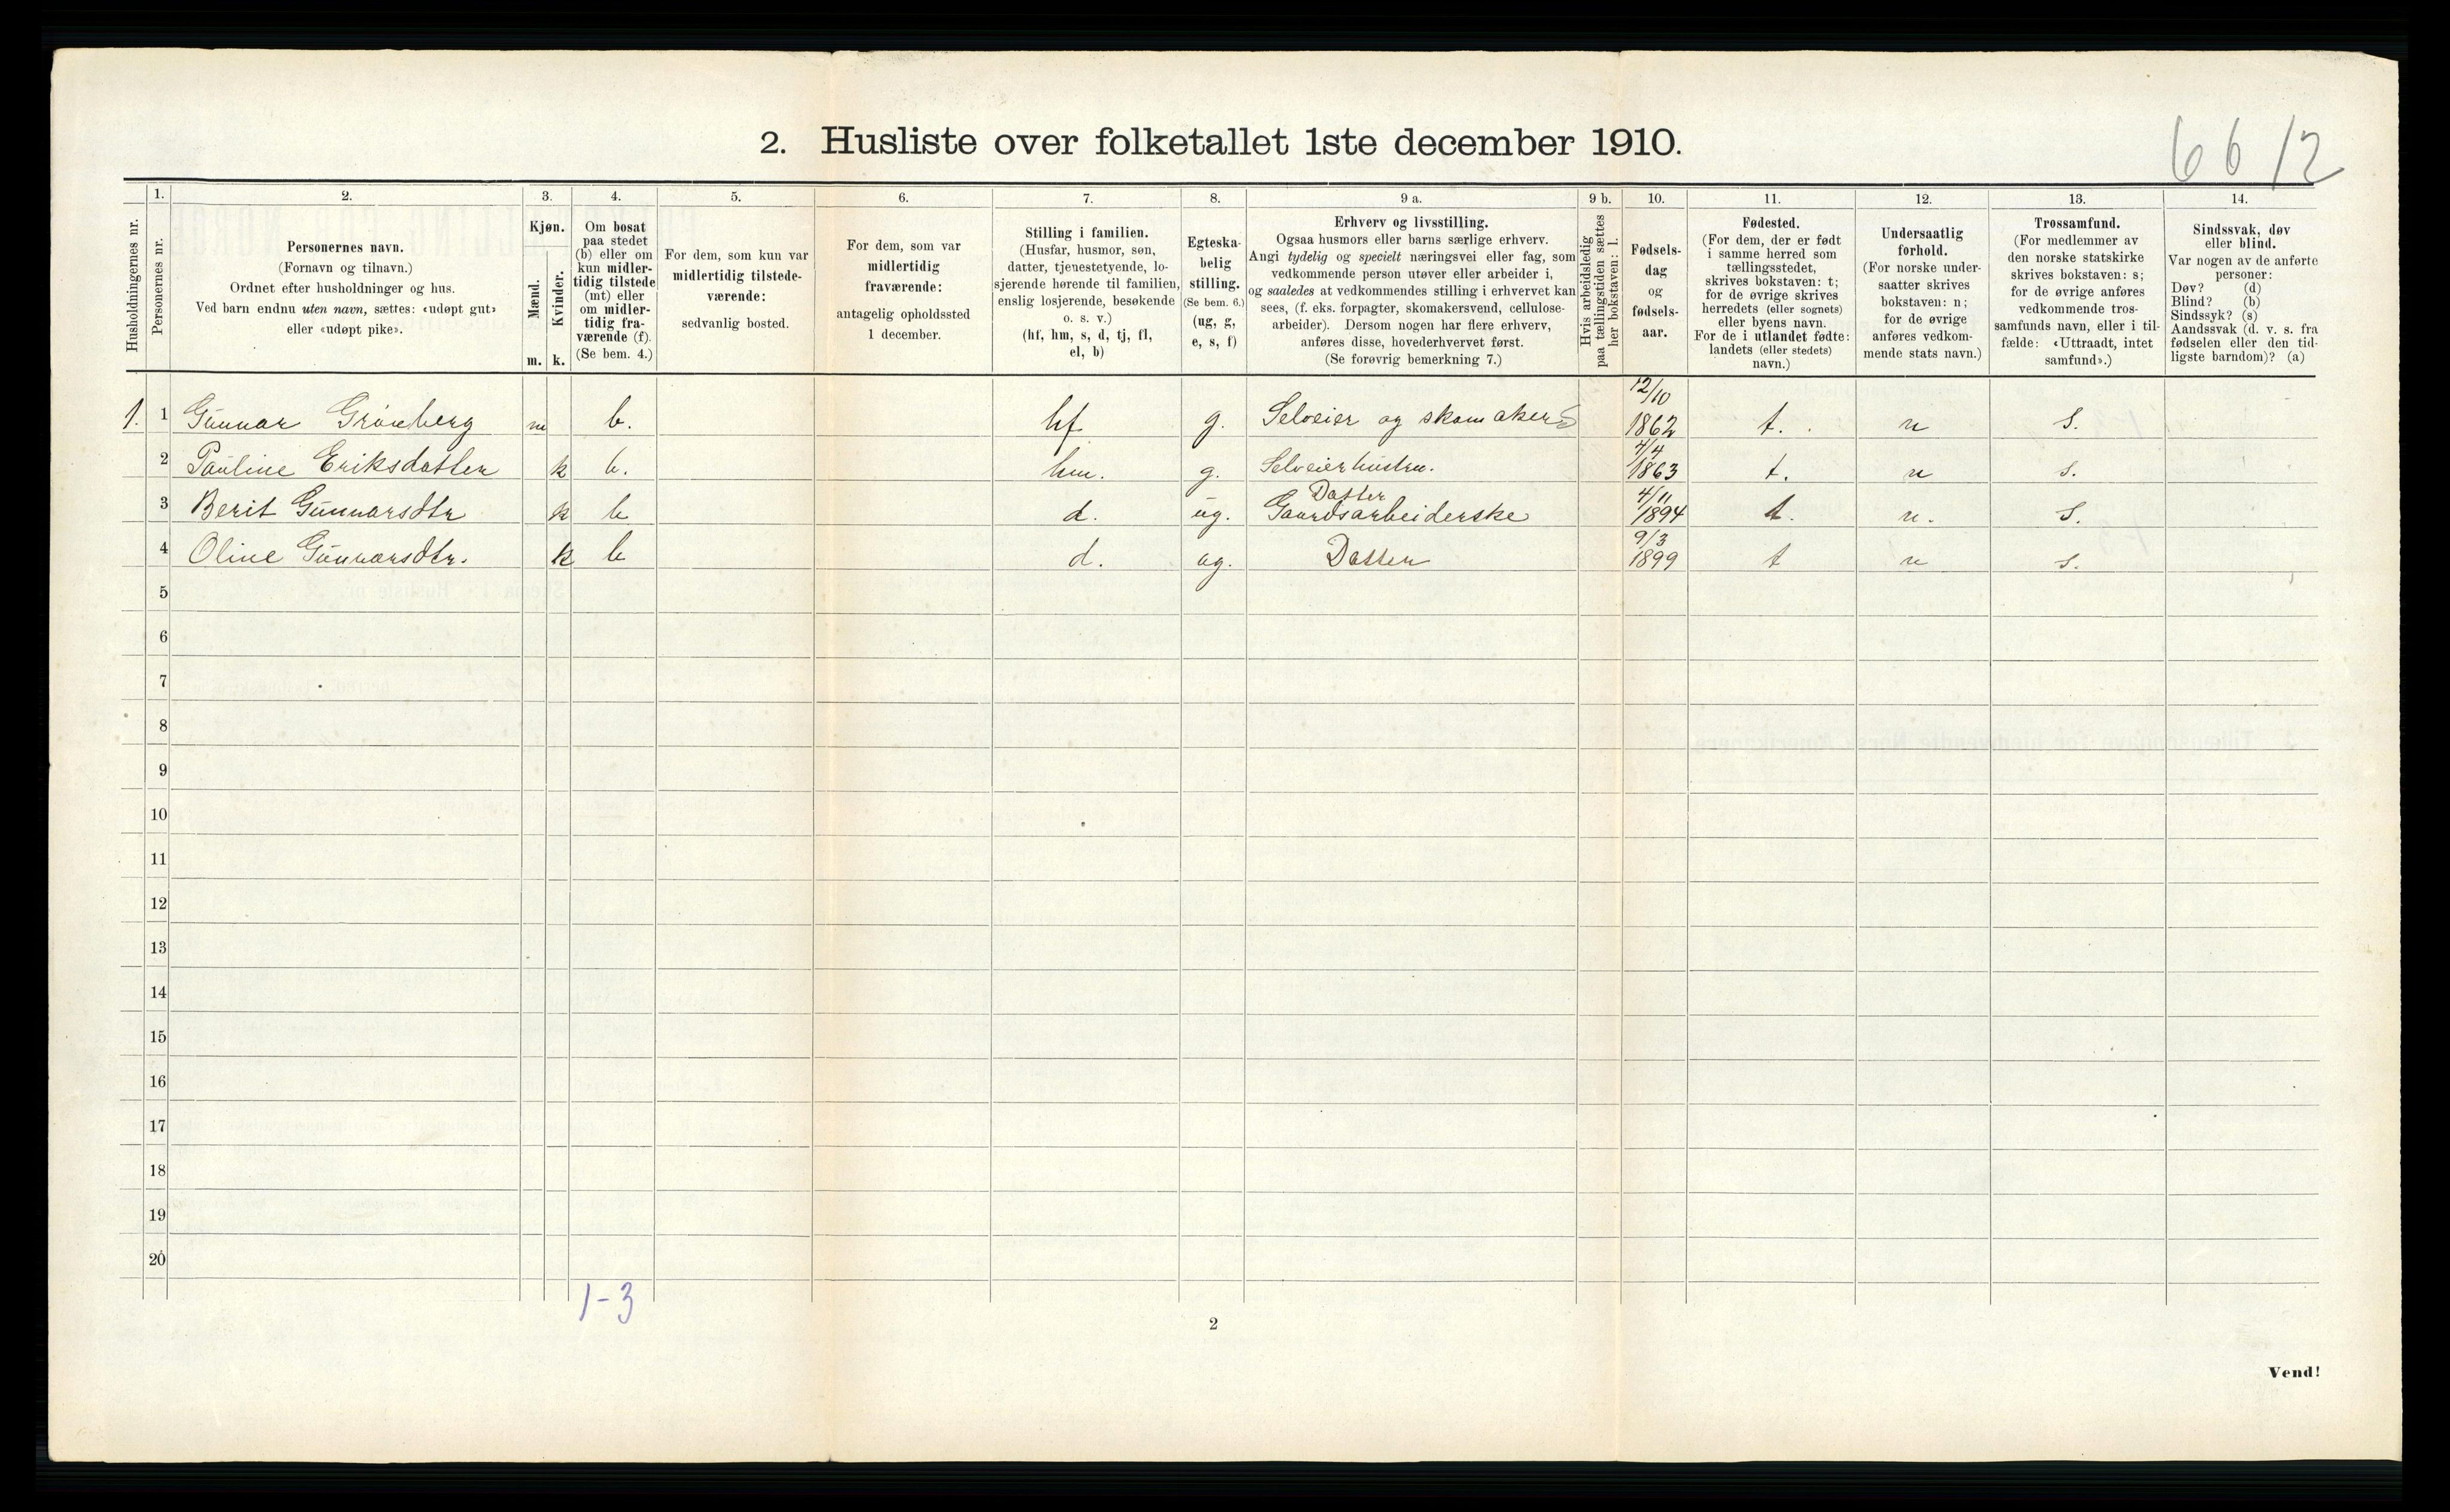 2. Husliste over folketallet 1ste december 1910.
6612
Husholdningernes nr.
1.
Personernes nr.
2.
Personernes navn.
(Fornavn og tilnavn.)
Ordnet efter husholdninger og hus.
Ved barn endnu uten navn, sættes: «udøpt gut»
eller «udøpt pike».
3.
Kjøn.
Mænd.
m.
Kvinder.
k.
4.
Om bosat
paa stedet
(b) eller om
kun midler-
tidig tilstede
(mt) eller
om midler-
tidig fra-
værende (f).
(Se bem. 4.)
5.
For dem, som kun var
midlertidig tilstede-
værende:
sedvanlig bosted.
6.
For dem, som var
midlertidig
fraværende:
antagelig opholdssted
1 december.
7.
Stilling i familien.
(Husfar, husmor, søn,
datter, tjenestetyende, lo-
sjerende hørende til familien,
enslig losjerende, besøkende
o. s. v.)
(hf, hm, s, d, tj, fl,
el, b)
8.
Egteska-
belig
stilling.
(Se bem. 6.)
(ug, g,
e, s, f)
9 a.
Erhverv og livsstilling.
Ogsaa husmors eller barns særlige erhverv.
Angi tydelig og specielt næringsvei eller fag, som
vedkommende person utøver eller arbeider i,
og saaledes at vedkommendes stilling i erhvervet kan
sees, (f. eks. forpagter, skomakersvend, cellulose-
arbeider). Dersom nogen har flere erhverv,
anføres disse, hovederhvervet først.
(Se forøvrig bemerkning 7.)
9 b.
Hvis arbeidsledig
paa tællingstiden sættes
her bokstaven: l.
10.
Fødsels-
dag
og
fødsels-
aar.
11.
Fødested.
(For dem, der er født
i samme herred som
tællingsstedet,
skrives bokstaven: t;
for de øvrige skrives
herredets (eller sognets)
eller byens navn.
For de i utlandet fødte:
landets (eller stedets)
navn.)
12.
Undersaatlig
forhold.
(For norske under-
saatter skrives
bokstaven: n;
for de øvrige
anføres vedkom-
mende stats navn.)
13.
Trossamfund.
(For medlemmer av
den norske statskirke
skrives bokstaven: s;
for de øvrige anføres
vedkommende tros-
samfunds navn, eller i til-
fælde: «Uttraadt, intet
samfund».)
14.
Sindssvak, døv
eller blind.
Var nogen av de anførte
personer:
Døv? (d)
Blind? (b)
Sindssyk? (s)
Aandssvak (d. v. s. fra
fødselen eller den tid-
ligste barndom)? (a)
1. 1 Gunnar Grönberg m b. hf g. Selveier og skomaker S 12/10 1862 t. n s.
2 Pauline Eriksdatter k b. hm. g. Selveierhustru. 4/4 1863 t. n s.
3 Berit Gunnarsdtr k b d. ug. Datter Gaardsarbeiderske 4/11 1894 t. n. s.
4 Oline Gunnarsdtr. k b d. ug. Datter 9/3 1899 t n s.
5
6
7
8
9
10
11
12
13
14
15
16
17
18
19
20
1-3
2
Vend!